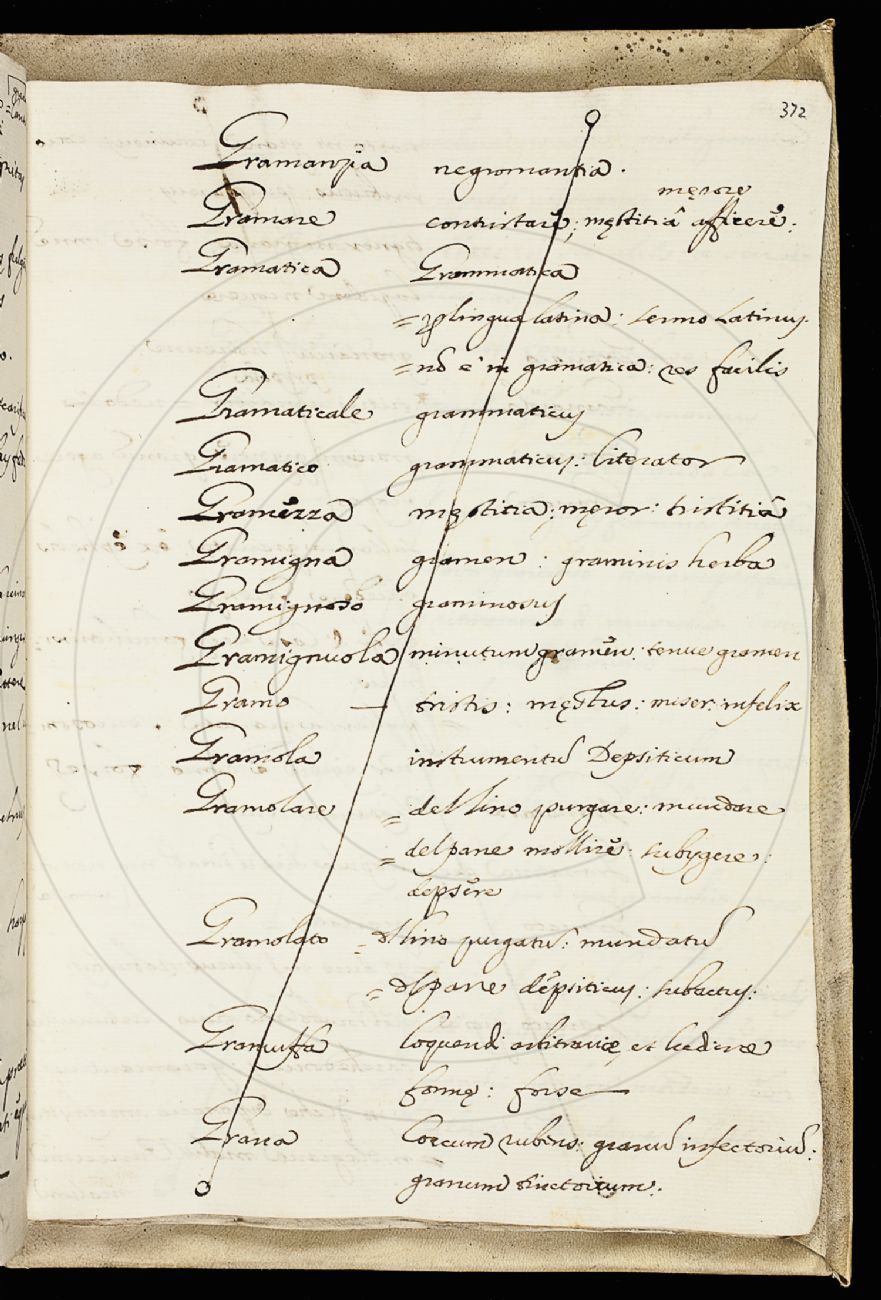 372
Gramanzia negromantia.
męrore
Gramare contristare; męstitiâ afficere:
Gramatica Grammatica
= ꝑ lingua latina: sermo Latinus.
= nõ è in gramatica: res facilis
Gramaticale grammaticus
Gramatico grammaticus: literator
Gramezza męstitia; męror: tristitiâ
Gramigna gramen: graminis herba
Gramignoso graminosus
Gramignuola minutum gramen: tenue gramen
Gramo — tristis: męstus: miser: infelix
Gramola instrumentũ Depsiticum
Gramolare = del lino purgare: mundare
= del pane mollire: subygere:
depsere
Gramolato = dl lino purgatũ: mundatũ
= dl pane depsiticus: subactus:
Gramuffa loquendi arbitrarię et
formę: forse
Grana Coccum rubens: granũ infectoriũ:
granum tinctorium.